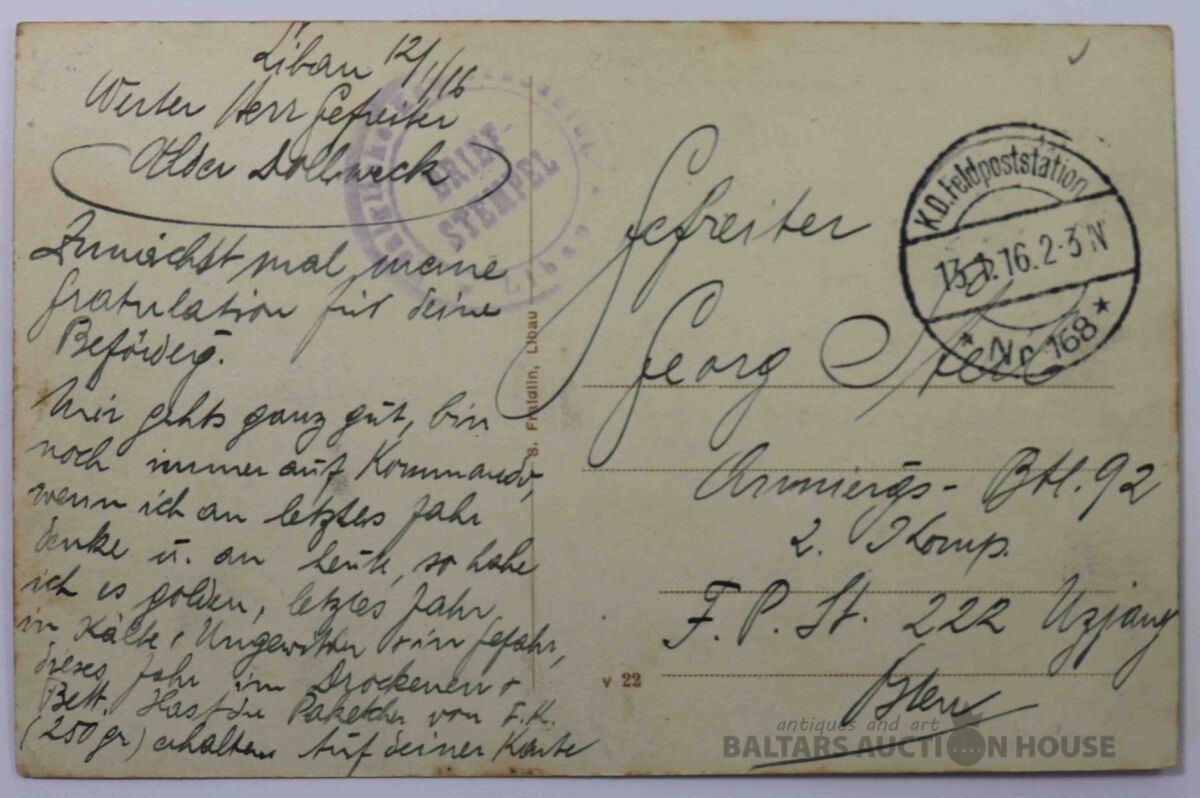 Libau 12/1/16
Werter Herr Gefreiter
Alder Dollweck
Zunächst mal meine
Gratulation für deine
Beförderg.
Mir gehts ganz gut, bin
noch immer auf Kommando,
wenn ich an letztes Jahr
denke u. an heute, so habe
ich es golden, letztes Jahr
in Kälte, Ungewitter + in Gefahr,
dieses Jahr im Drockenen +
Bett. Hast du Paketchen von F.K.
(250 gr) erhalten. Auf deiner Karte
BRIEF-
STEMPEL
Libau
S. Fraidlin, Libau
v 22
K.D. Feldpoststation
13.1.16.2-3N
* Nr. 168 *
Gefreiter
Georg
Armiergs- Btl. 92
2. Komp.
F. P. St. 222 Uzjany
antiques and art
BALTARS AUCTION HOUSE